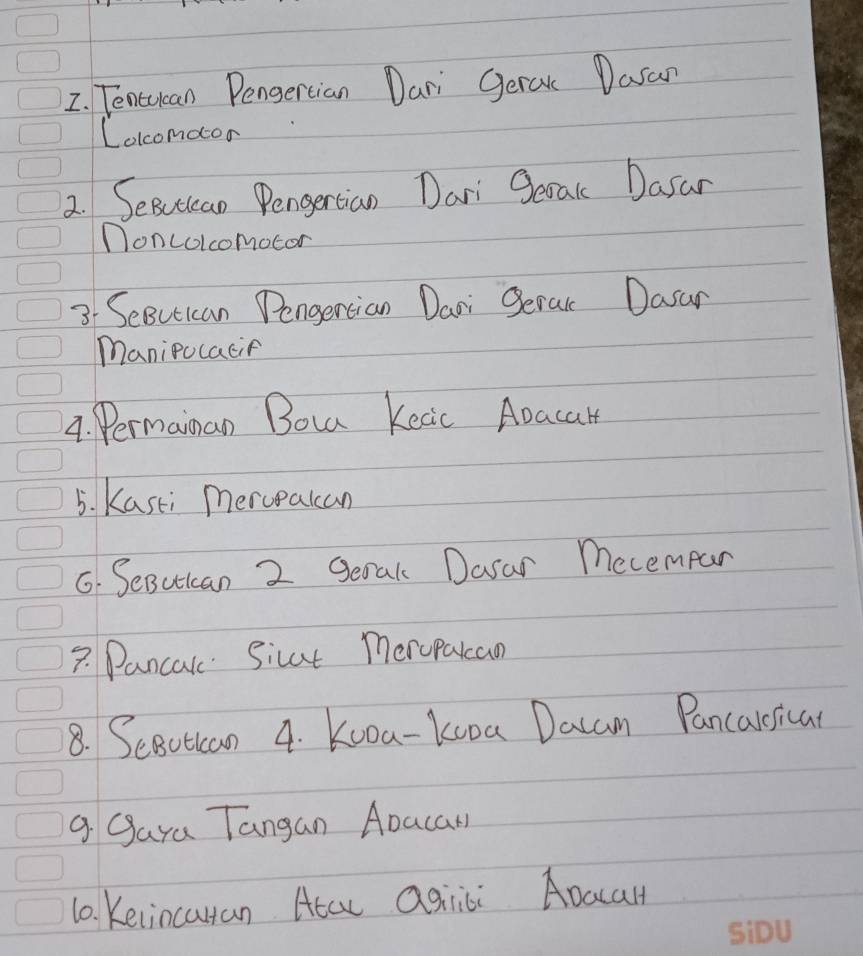 1. Tentukan Pengertian Dari Gerak Dasar
Lokomotor
2. Sebutkan Pengertian Dari Gerak Dasar
Nonlokomotor
3. Sebutkan Pengertian Dari Gerak Dasar
Manipulatif
4. Permainan Bola Kecil Adalah
5. Kasti Merupakan
6. Sebutkan 2 Gerak Dasar Melempar
7. Pancak Silat Merupakan
8. Sebutkan 4. Kuda-Kuda Dalam Pancaksilat
9. Gaya Tangan Adalah
10. Kelincahan Atau Agiliti Adalah
SiDU